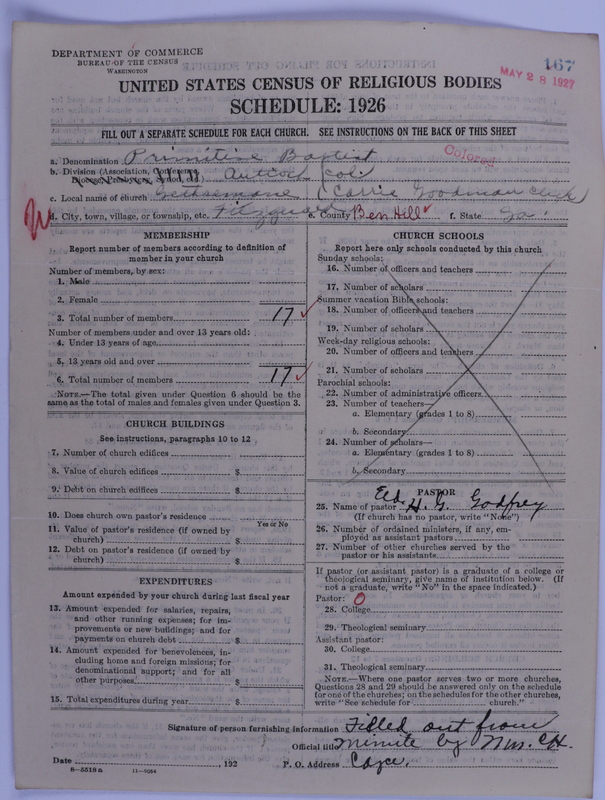 DEPARTMENT OF COMMERCE
BUREAU OF THE CENSUS
WASHINGTON
167
MAY 28 1927
UNITED STATES CENSUS OF RELIGIOUS BODIES
SCHEDULE: 1926
FILL OUT A SEPARATE SCHEDULE FOR EACH CHURCH. SEE INSTRUCTIONS ON THE BACK OF THIS SHEET
Colored
a. Denomination Primitive Baptist
b. Division (Association, Conference, Diocese, Presbytery, Synod, etc.) Antioch Col.
c. Local name of church Gethsemane (Carrie Goodman Clerk
d. City, town, village, or township, etc. Fitzgerald e. County Ben Hill f. State Ga.
MEMBERSHIP
Report number of members according to definition of
member in your church
Number of members, by sex:
1. Male
2. Female
3. Total number of members 17
Number of members under and over 13 years old:
4. Under 13 years of age
5. 13 years old and over
6. Total number of members 17
NOTE.—The total given under Question 6 should be
same as the total of males and females given under Question 3.
CHURCH BUILDINGS
See instructions, paragraphs 10 to 12
7. Number of church edifices
8. Value of church edifices $
9. Debt on church edifices $
10. Does church own pastor's residence
Yes or No
11. Value of pastor's residence (if owned by
church) $
12. Debt on pastor's residence (if owned by
church) $
EXPENDITURES
Amount expended by your church during last fiscal year
13. Amount expended for salaries, repairs,
and other running expenses; for im-
provements or new buildings; and for
payments on church debt $
14. Amount expended for benevolences, in-
cluding home and foreign missions; for
denominational support; and for all
other purposes $
15. Total expenditures during year $
CHURCH SCHOOLS
Report here only schools conducted by this church
Sunday schools:
16. Number of officers and teachers
17. Number of scholars
Summer vacation Bible schools:
18. Number of officers and teachers
19. Number of scholars
Week-day religious schools:
20. Number of officers and teachers
21. Number of scholars
Parochial schools:
22. Number of administrative officers
23. Number of teachers—
a. Elementary (grades 1 to 8)
b. Secondary
24. Number of scholars—
a. Elementary (grades 1 to 8)
b. Secondary
PASTOR
25. Name of pastor Eld. H. G. Godfrey
(If church has no pastor, write "None")
26. Number of ordained ministers, if any, em-
ployed as assistant pastors
27. Number of other churches served by the
pastor or his assistants
If pastor (or assistant pastor) is a graduate of a college or
theological seminary, give name of institution below. (If
not a graduate, write "No" in the space indicated.)
Pastor: 0
28. College
29. Theological seminary
Assistant pastor:
30. College
31. Theological seminary
NOTE.—Where one pastor serves two or more churches,
Questions 28 and 29 should be answered only on the schedule
for one of the churches; on the schedules for the other churches,
write "See schedule for church."
Signature of person furnishing information Filled out from
Official title Minute by Mrs. C.H.
Date , 192 P. O. Address Cayce.
8-5518a 11-9054